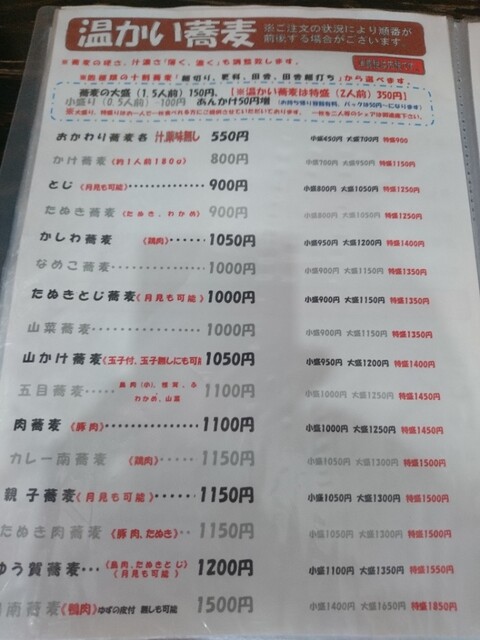 温かい蕎麦 ※ご注文の状況により順番が
前後する場合がございます。
※蕎麦の硬さ、汁濃さ「薄く、濃く」も調整致します。
蕎麦の大盛(1,5人前)150円、【※温かい蕎麦は特盛(2人前)350円】
小盛り(0.5人前)-100円 あんかけ50円増
おかわり蕎麦各 汁薬味無し 550円 小盛450円 大盛700円 特盛900
かけ蕎麦(約1人前180g) 800円 小盛700円 大盛950円 特盛1150円
とじ(月見も可能)・・・・・・・・・900円 小盛800円 大盛1050円 特盛1250円
たぬき蕎麦(たぬき、わかめ) 900円 小盛800円 大盛1050円 特盛1250円
かしわ蕎麦 (鶏肉)・・・・・・1050円 小盛950円 大盛1200円 特盛1400円
なめこ蕎麦・・・・・・・・・・・・1000円 小盛900円 大盛1150円 特盛1350円
たぬきとじ蕎麦(月見も可能)1000円 小盛900円 大盛1150円 特盛1350円
山菜蕎麦・・・・・・・・・・・・・・1000円 小盛900円 大盛1150円 特盛1350円
山かけ蕎麦(玉子付、玉子無しにも可)1050円 小盛950円 大盛1200円 特盛1400円
五目蕎麦・・・・・ 1100円 小盛1000円 大盛1250円 特盛1450円
わかめ、山菜
肉蕎麦 (豚肉)・・・・・・・・・・・1100円 小盛1000円 大盛1250円 特盛1450円
カレー南蕎麦 (鶏肉)・・・・・1150円 小盛1050円 大盛1300円 特盛1500円
親子蕎麦(月見も可能)・・・・・1150円 小盛1050円 大盛1300円 特盛1500円
たぬき肉蕎麦 (豚肉、たぬき)・・1150円 小盛1050円 大盛1300円 特盛1500円
ゆう賀蕎麦・・・(鳥肉、たぬきとじ) 1200円 小盛1100円 大盛1350円 特盛1550円
(月見も可能)
南蕎麦(鴨肉)ゆずの皮付 無しも可能 1500円 小盛1400円 大盛1650円 特盛1850円